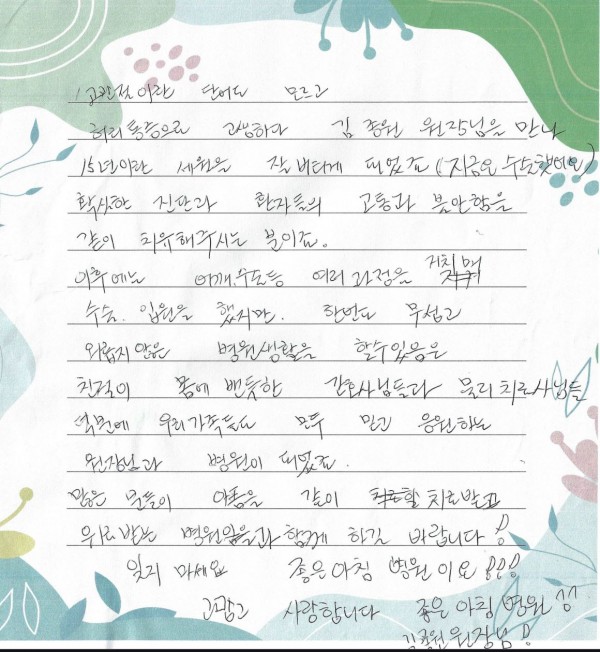 고관절이란 단어도 모르고
허리통증으로 고생하다 김종원 원장님을 만나
15년이란 세월을 잘 버티게 되었죠 (지금은 수술했어요)
확실한 진단과 환자들의 고통과 불안함을
같이 치유해주시는 분이죠.
이후에는 어깨.수도등 여러 과정을 거치며
수술. 입원을 했지만. 한번도 무섭고
외롭지 않은 병원생활을 할수있음은
친절이 몸에 밴듯한 간호사님들과 물리치료사님들
덕분에 우리가족들도 모두 믿고 응원하는
원장님과 병원이 되었죠.
많은 분들이 아픔을 같이 치료받고
위로받는 병원임을 함께 하길 바랍니다!
잊지 마세요 좋은아침 병원 이요!!!
고맙고 사랑합니다 좋은 아침 병원
김종원 원장님!